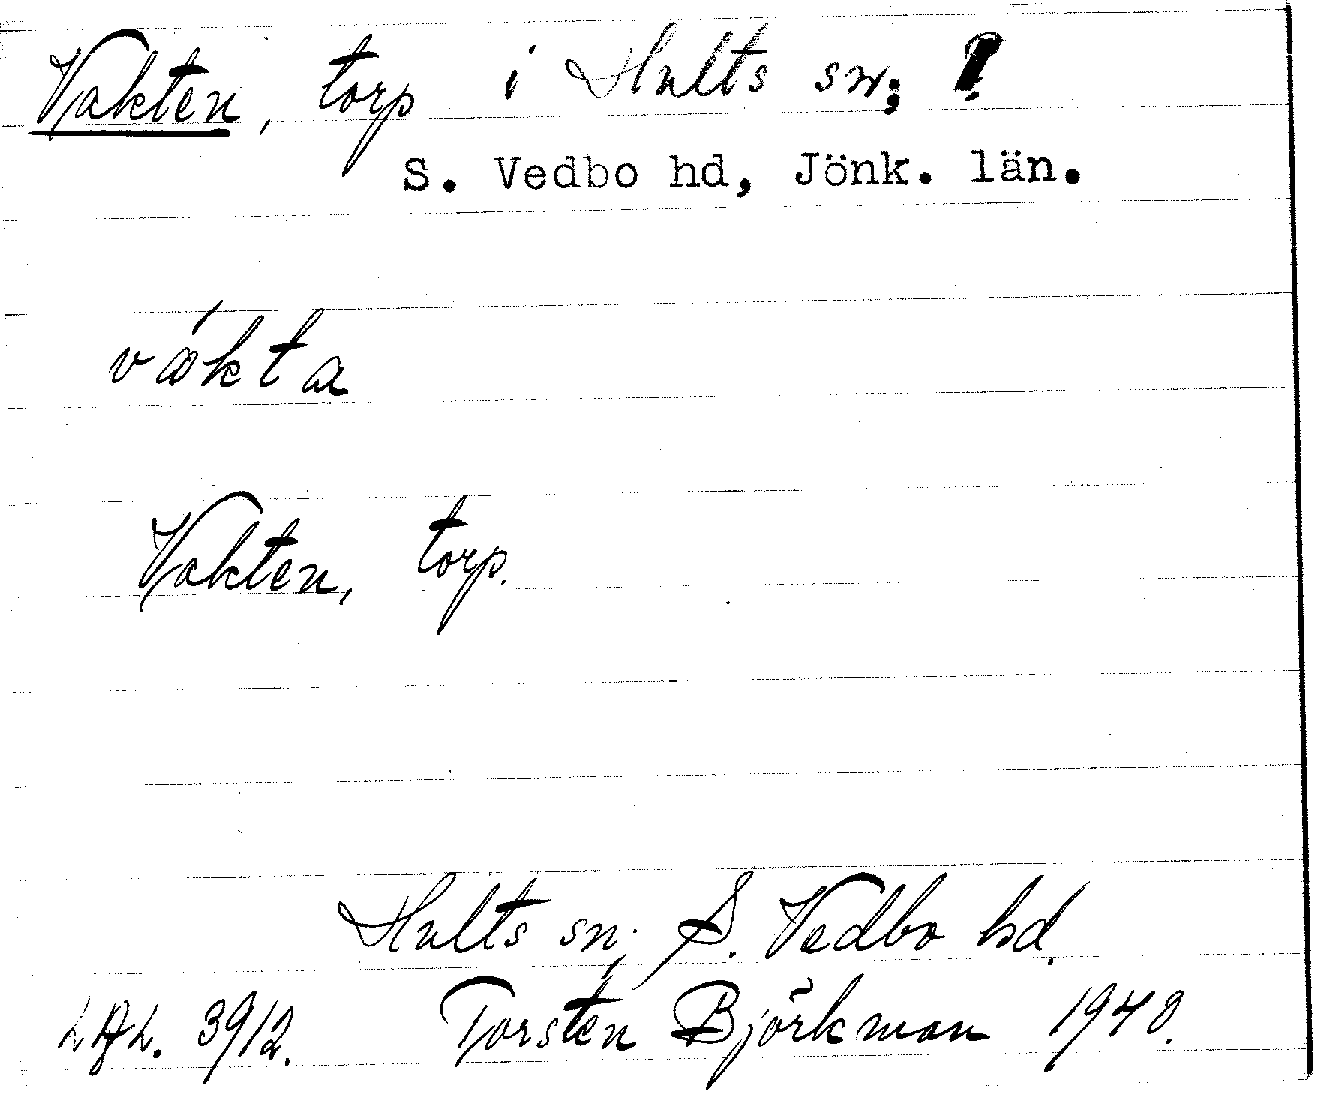 Vakten, torp i Hults sn;
S. Vedbo hd, Jönk. län.
vákta
Vakten, torp.
Hults sn; S. Vedbo hd.
LAL. 3912. Torsten Björkman 1940.